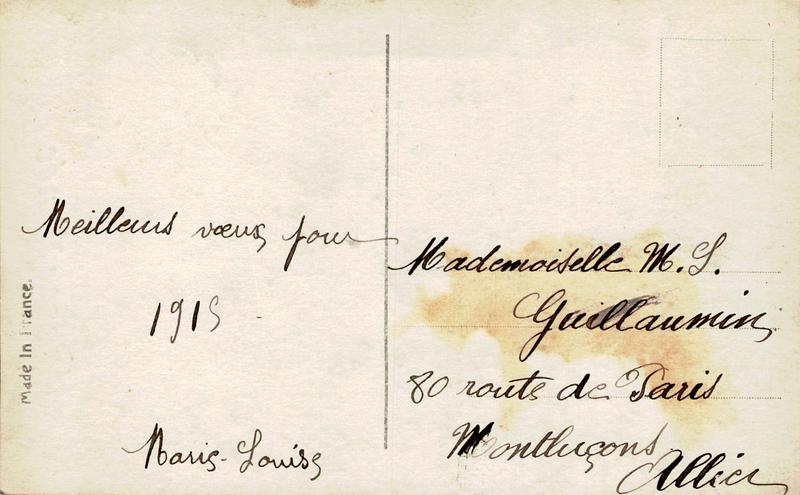 Meilleurs vœux pour
1915
Marie-Louise
Mademoiselle M. L.
Guillaumin
80 route de Paris
Montluçons
Allier
Made In France.